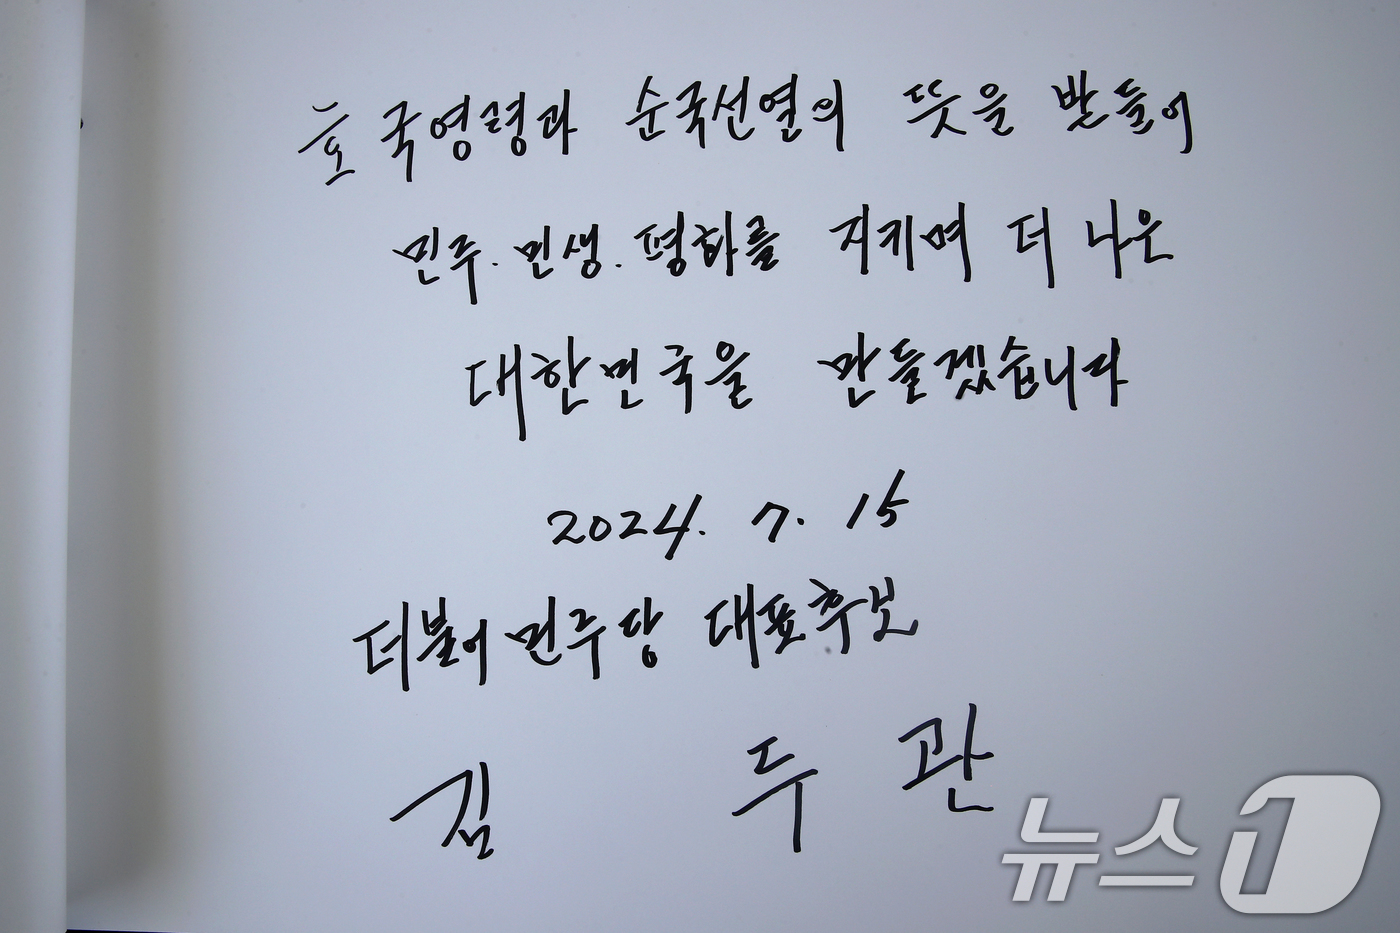 호국영령과 순국선열의 뜻을 받들어
민주.민생.평화를 지키며 더 나은
대한민국을 만들겠습니다
2024. 7. 15
더불어민주당 대표후보
김 두 관
뉴스1